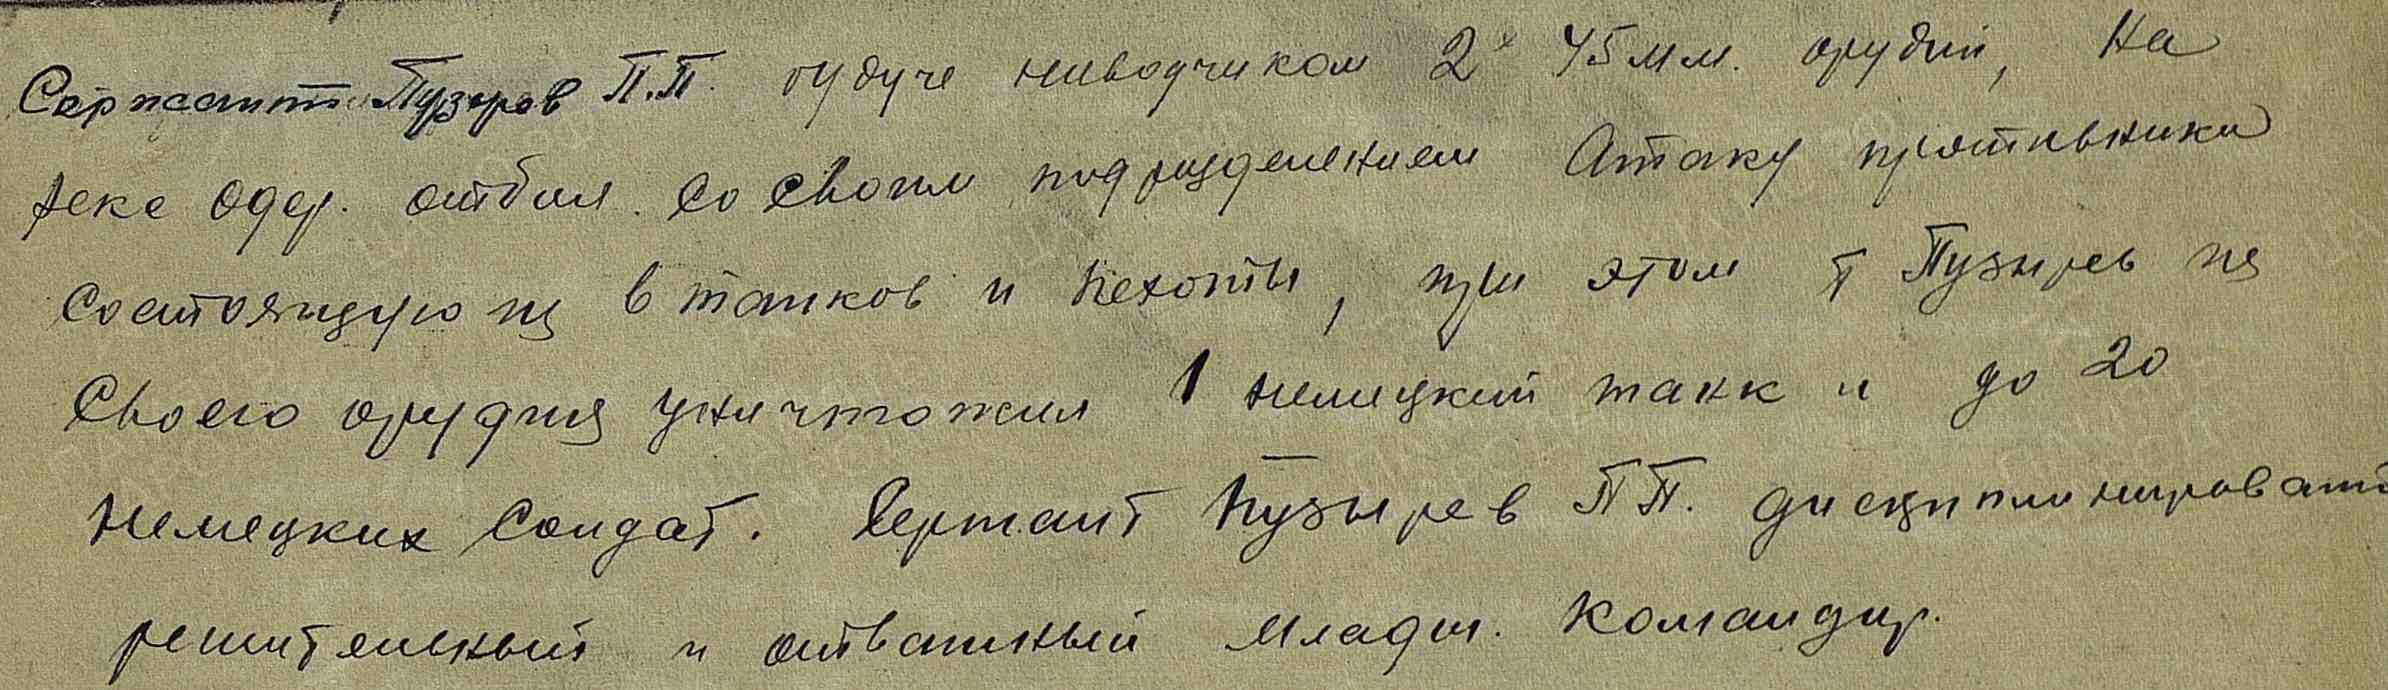 Сержант Пузырев П.П. будуче наводчиком 2х 45 мм. орудий, На
реке Одер. отбил со своим подразделением Атаку противника
Состоящую из 6 танков и пехоты, при этом т Пузырев из
Своего орудия уничтожил 1 немецкий танк и до 20
немецких Солдат. Сержант Пузырев П П. дисциплинирован
решительный и отважный младш. командир.